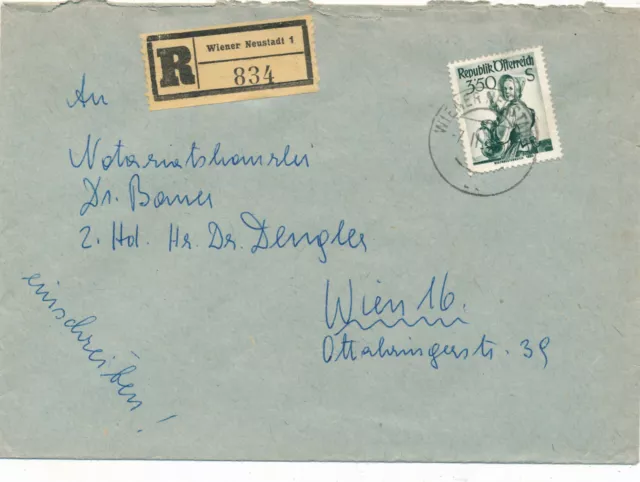 R
Wiener Neustadt 1
834
Republik Österreich
3·50
S
WIENER
An
Notariatskanzlei
Dr. Bauer
z. Hd. Hr. Dr. Dengler
Wien 16.
Ottakringerstr. 39
einschreiben!